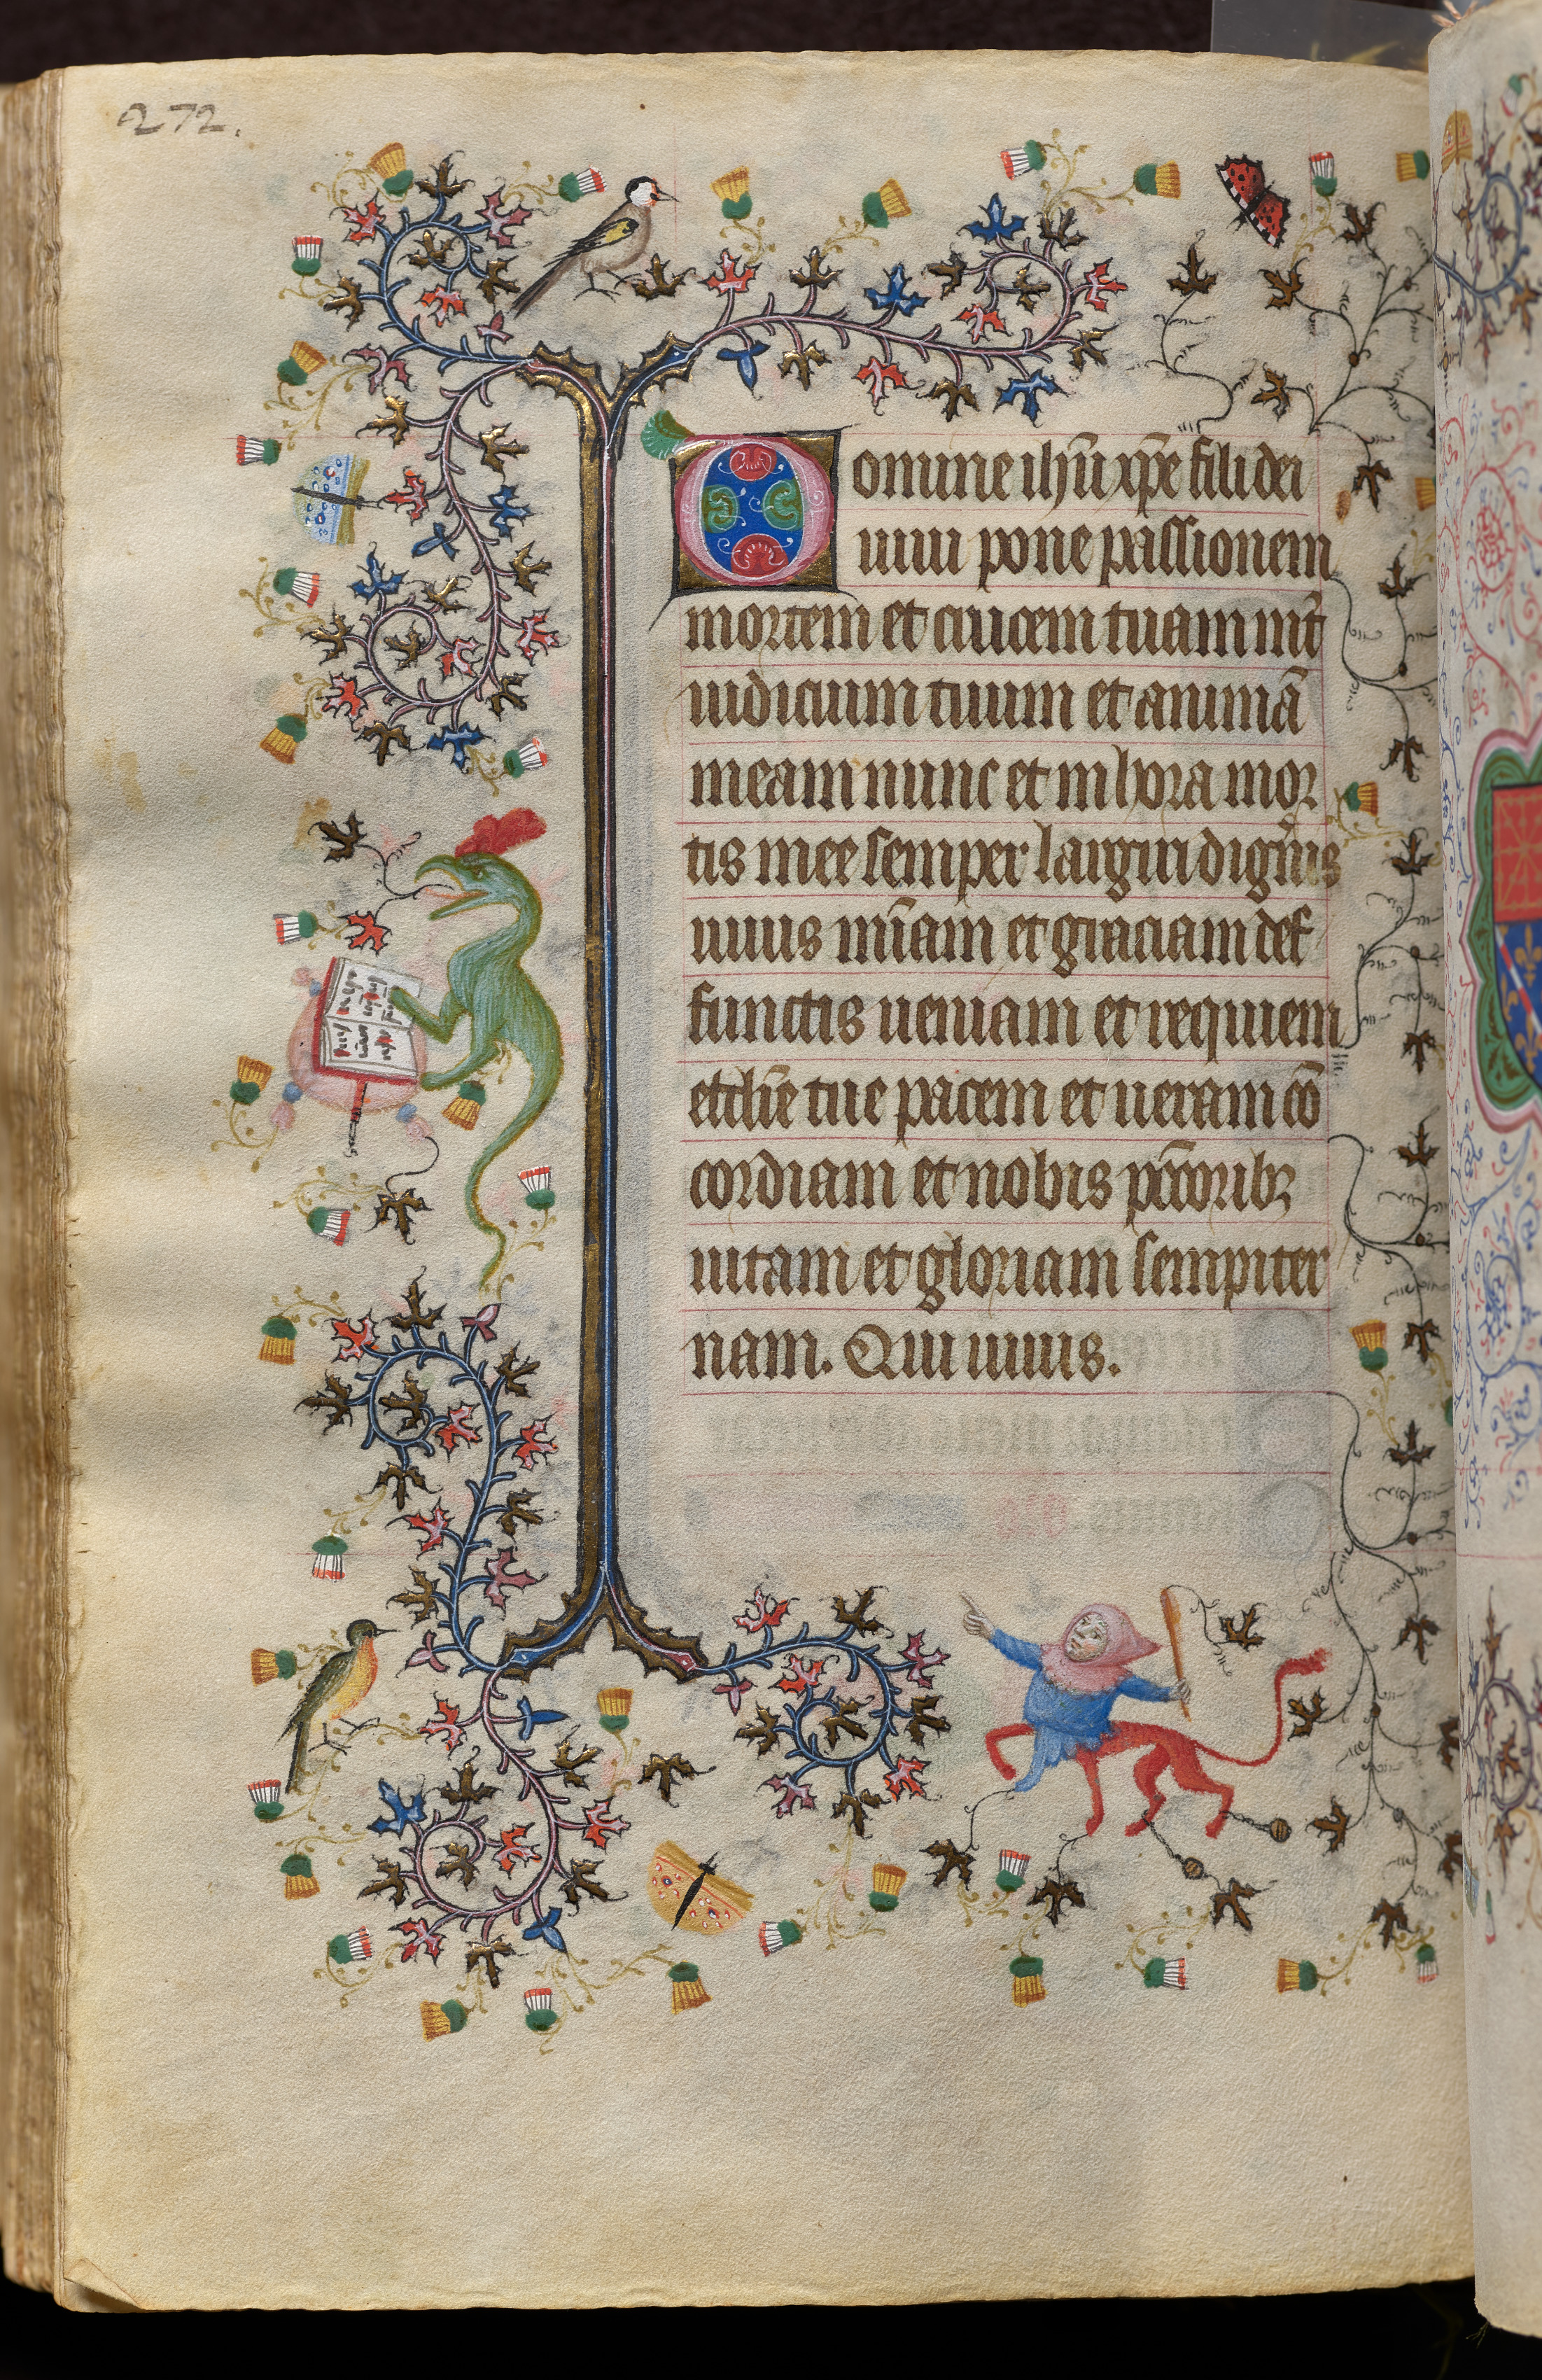 272.
Domine ihu̅ xp̅e fili dei
uiui pone passionem
mortem et crucem tuam int̅
iudicium tuum et anima̅
meam nunc et in hora mor
tis mee semper largiri dign̅is
uiuis mi̅am et graciam def
functis ueniam et requiem
etcl̅ie tue pacem et ueram co̅
cordiam et nobis pcc̅oribꝫ
uitam et gloriam sempiter
nam. Qui uiuis.